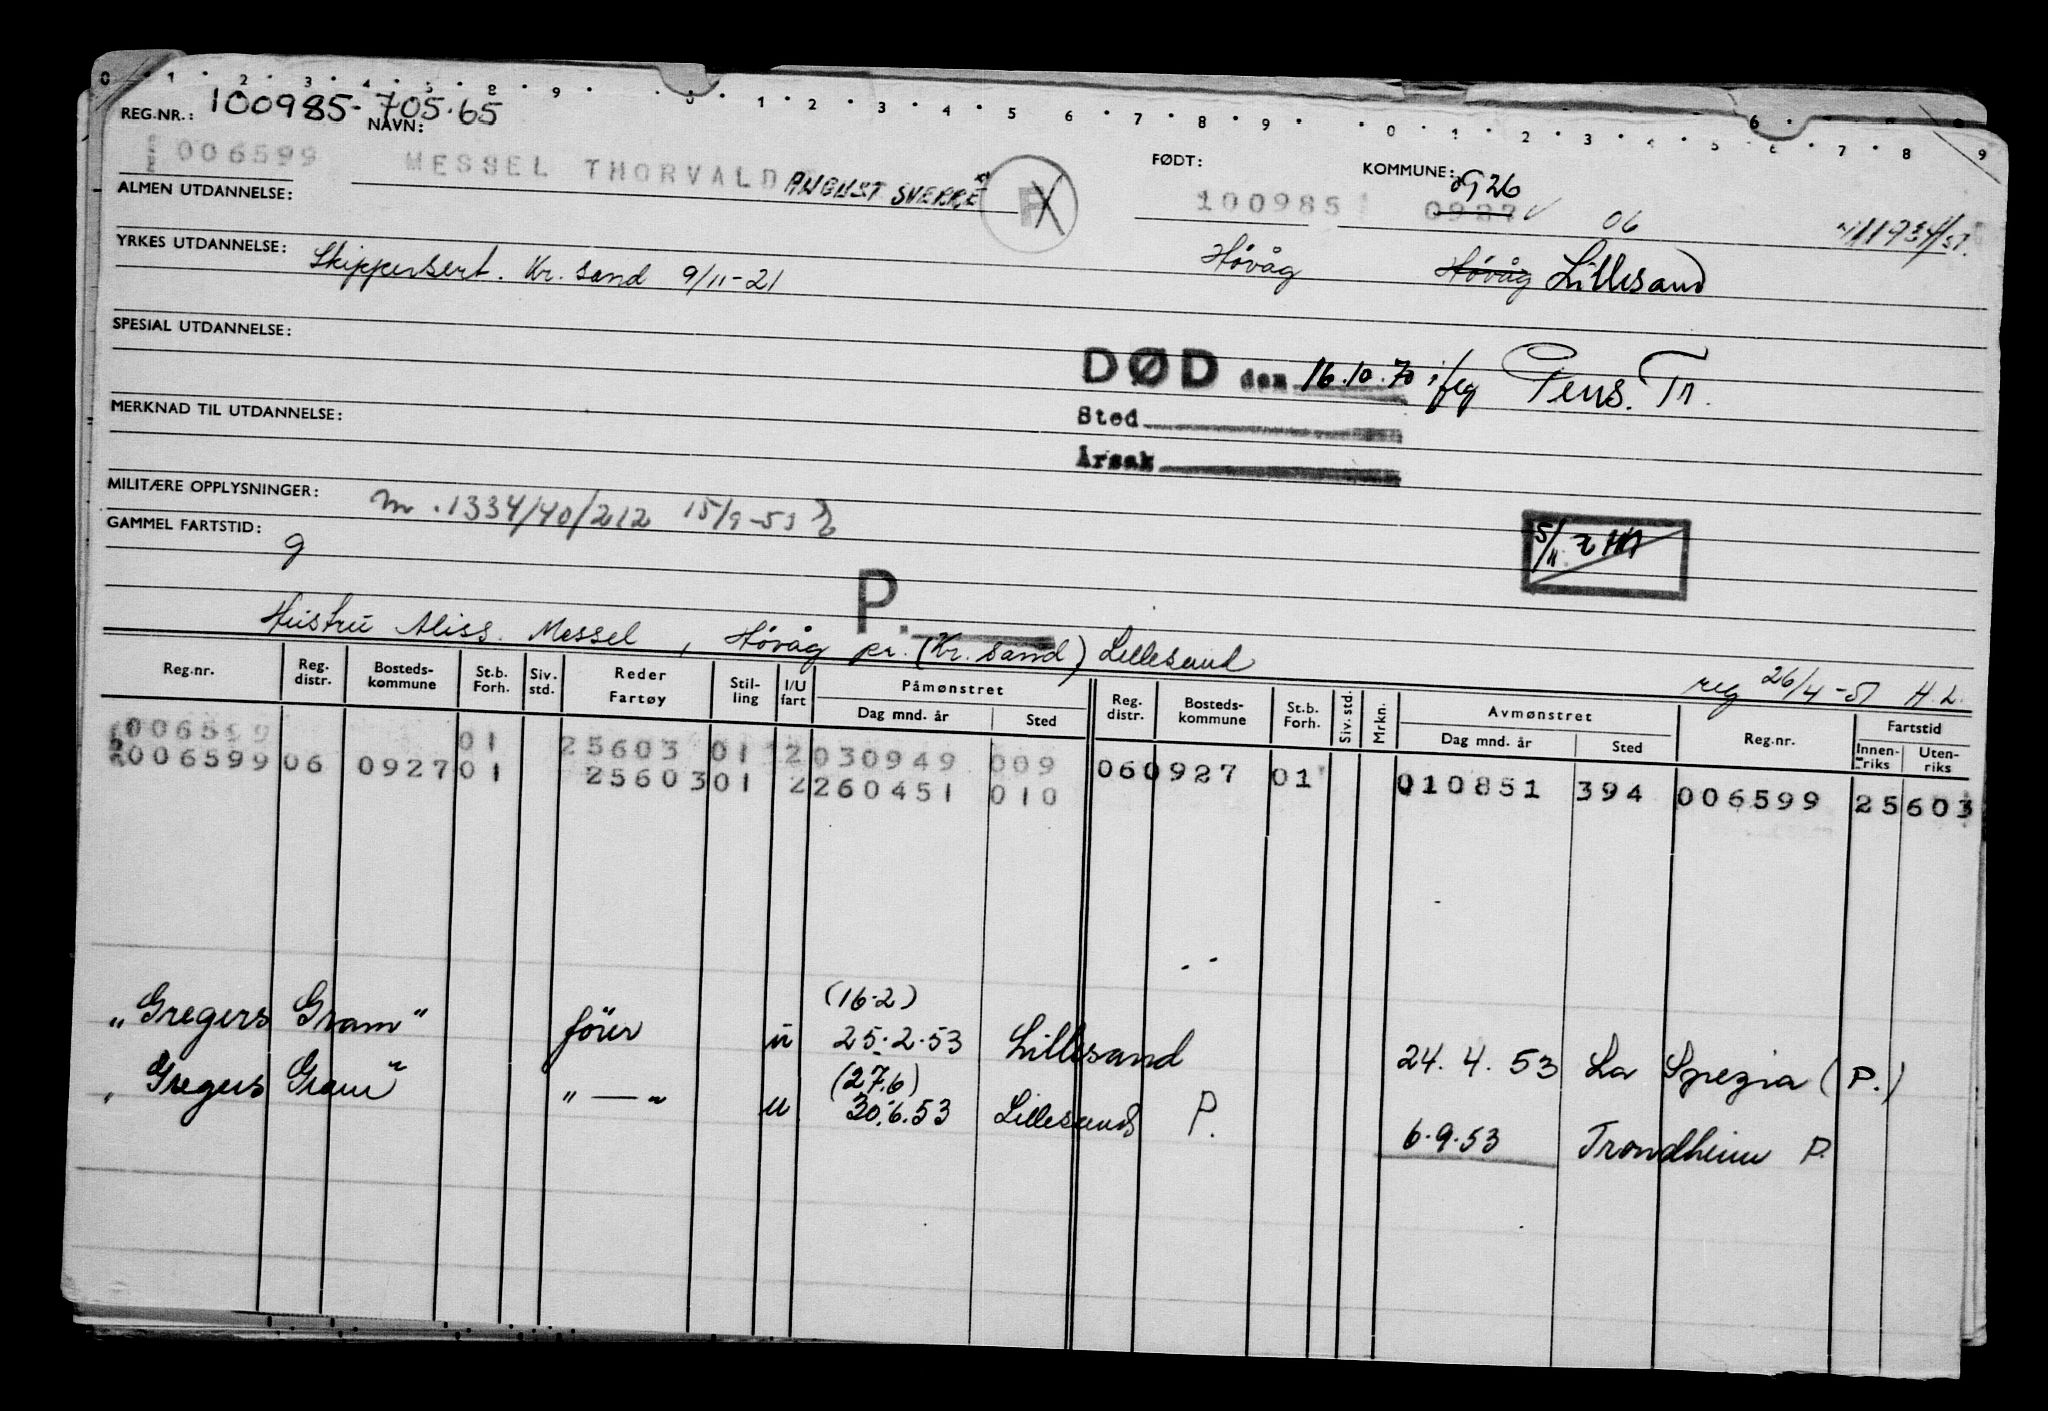 0 1 2 3 4 5 8 9 0 1 2 3 4 5 6 7 8 9 0 1 2 3 4 5 6 7 8 9
REG.NR.: 100985-705.65
NAVN:
006599 MESSEL THORVALD AUGUST SVERRE
FØDT: 100985
KOMMUNE: 0926
0927 06
ALMEN UTDANNELSE:
YRKES UTDANNELSE: Skippersert. Kr. sand 9/11-21
Høvåg Høvåg Lillesand
SPESIAL UTDANNELSE:
DØD den 16.10.70 Pens. Tr.
Sted
Årsak
MERKNAD TIL UTDANNELSE:
MILITÆRE OPPLYSNINGER: m.1334/40/212 15/9-53
GAMMEL FARTSTID: g
5/11
P.
Hustru Aliss. Messel, Høvåg pr. (Kr. sand) Lillesand
reg 26/4-51 H.L.
Reg.nr. Reg. distr. Bosteds-kommune St.b. Forh. Siv. std. Reder Fartøy Stil-ling I/U fart Påmønstret Dag mnd. år Sted Reg. distr. Bosteds-kommune St.b. Forh. Siv. std. Mrkn. Avmønstret Dag mnd. år Sted Reg.nr. Fartstid Innen-riks Uten-riks
006599 01 25603 01 2 030949 009
006599 06 0927 01 25603 01 2 260451 010 06 0927 01 010851 394 006599 25603
(16.2)
"Gregers Gram" förer u 25.2.53 Lillesand 24.4.53 La Spezia (P.)
(27.6)
"Gregers Gram" " — " u 30.6.53 Lillesand P. 6.9.53 Trondheim P.